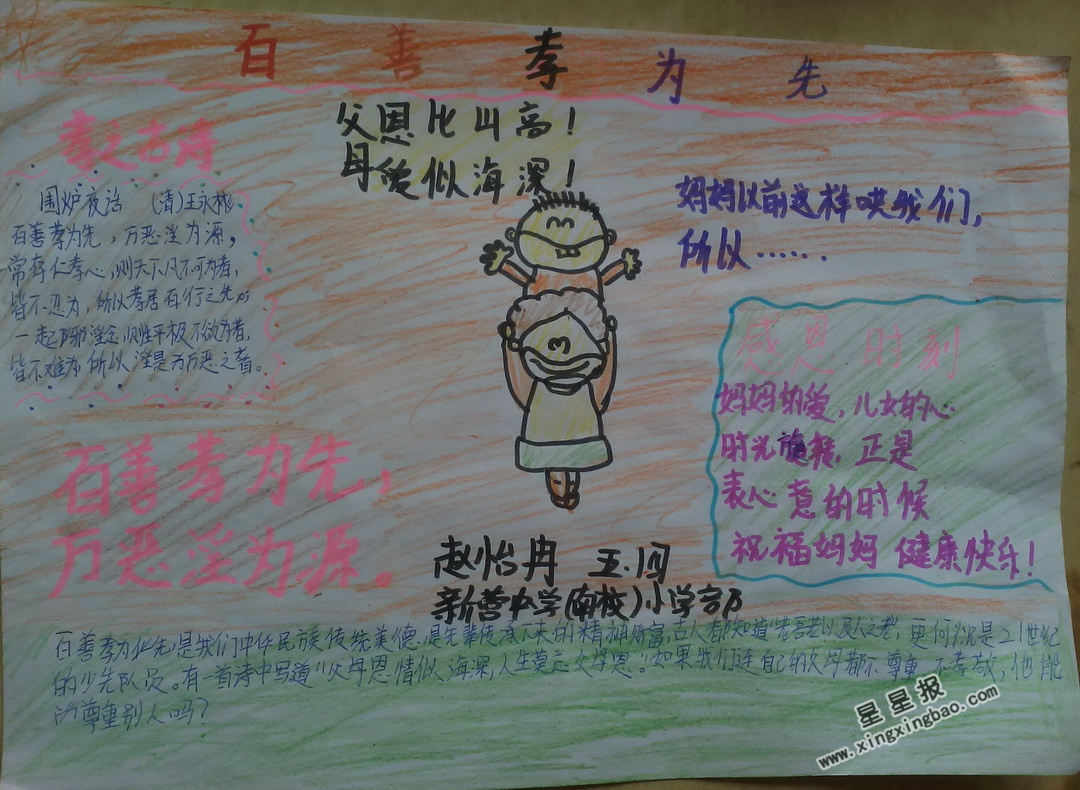 百善孝为先
父恩比山高!
母爱似海深!
孝之古诗
围炉夜话 (清)王永彬
百善孝为先,万恶淫为源。
常存仁孝心,则天下凡不可为者,
皆不忍为,所以孝居百行之先
一起邪淫念,则生平极不欲为者,
皆不难为 所以淫是万恶之首。
妈妈以前这样哄我们,
所以……
感恩时刻
妈妈的爱,儿女的心
时光旋转,正是
表心意的时候
祝福妈妈 健康快乐!
百善孝为先,
万恶淫为源。
赵怡冉 五.
新营中学(南校)小学部
百善孝为 先,是我们中华民族传统美德,是先辈传承下来的精神财富,古人都知道"老吾老以及人之老,更何况是21世纪
的少先队员。有一首诗中写道"父母恩情似海深,人生莫忘父母恩。"如果我们连自己的父母都不尊重,不孝敬,他能
的尊重别人吗?
星星报
www.xingxingbao.com